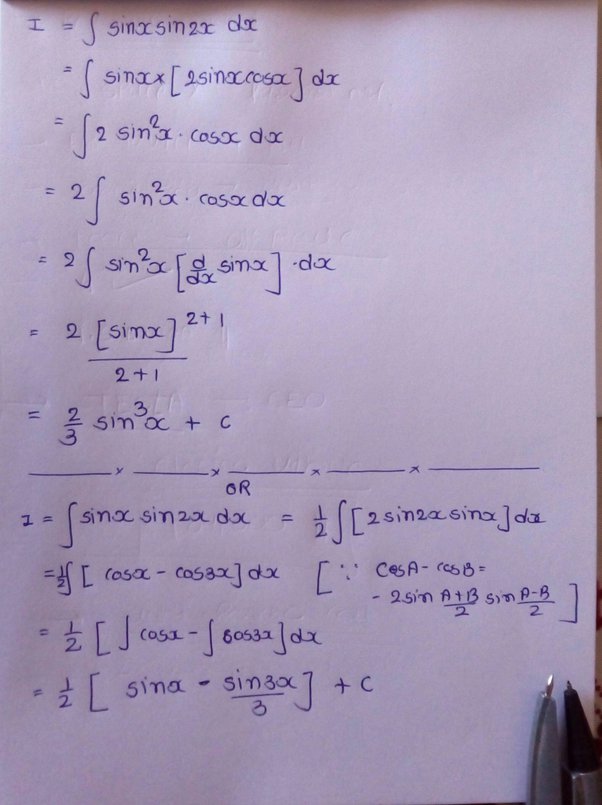 I = ∫ sinx sin2x dx
= ∫ sinx × [2sinxcosx] dx
= ∫ 2 sin²x · cosx dx
= 2 ∫ sin²x · cosx dx
= 2 ∫ sin²x [d/dx sinx] · dx
= 2 [sinx]^(2+1) / (2+1)
= 2/3 sin³x + c
OR
I = ∫ sinx sin2x dx = 1/2 ∫ [2sin2x sinx] dx
= 1/2 ∫ [cosx - cos3x] dx [∵ cosA - cosB =
- 2sin (A+B)/2 sin (A-B)/2]
= 1/2 [∫ cosx - ∫ cos3x] dx
= 1/2 [sinx - sin3x/3] + c